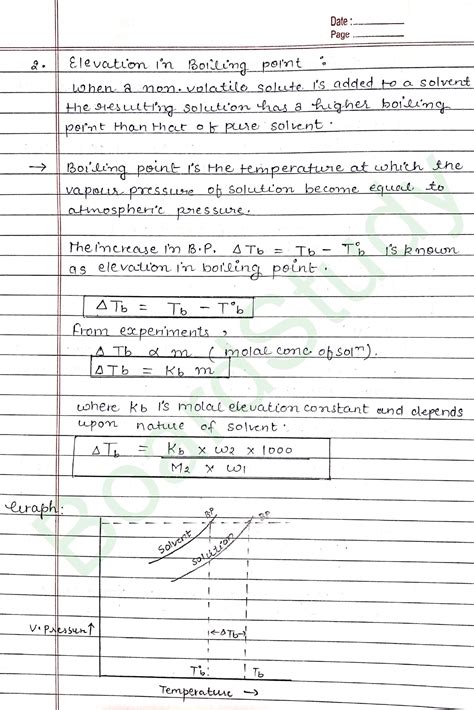 Date :
Page
2. Elevation in Boiling point :
When a non-volatile solute is added to a solvent
the resulting solution has a higher boiling
point than that of pure solvent.
→ Boiling point is the temperature at which the
vapour pressure of solution become equal to
atmospheric pressure.
The increase in B.P. ΔTb = Tb - T°b is known
as elevation in boiling point.
ΔTb = Tb - T°b
from experiments,
ΔTb α m (molal conc of solⁿ).
ΔTb = Kb m
where Kb is molal elevation constant and depends
upon nature of solvent.
ΔTb = Kb × w2 × 1000
M2 × w1
Graph:
BP BP
Solvent
Solution
V. Pressure↑
←ΔTb→
T°b Tb
Temperature →
BoardStudy